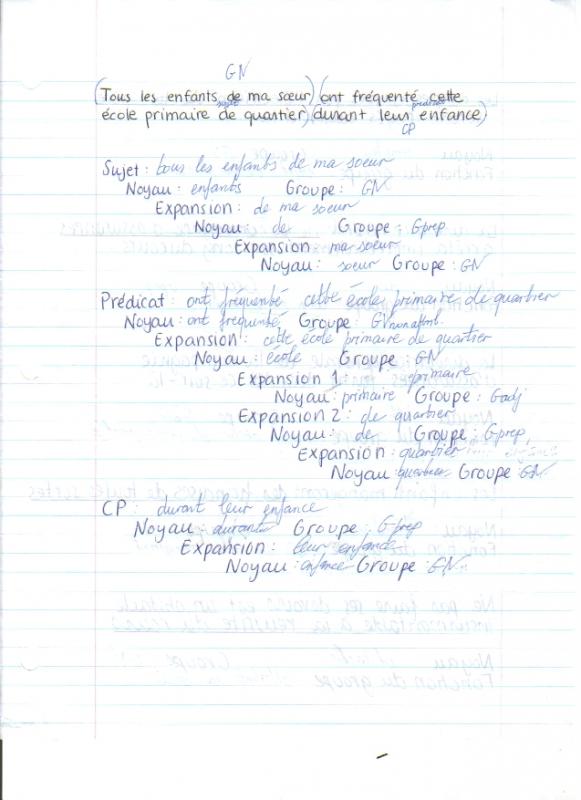 GN
(Tous les enfants de ma sœur) (ont fréquenté cette
sujet prédicat
école primaire de quartier) (durant leur enfance)
CP
Sujet : tous les enfants de ma soeur
Noyau : enfants Groupe : GN
Expansion : de ma soeur
Noyau : de Groupe : Gprep
Expansion ma soeur
Noyau : soeur Groupe : GN
Prédicat : ont fréquenté cette école primaire de quartier
Noyau : ont fréquenté Groupe : GV non attrib.
Expansion : cette école primaire de quartier
Noyau : école Groupe : GN
Expansion 1 : primaire
Noyau : primaire Groupe : Gadj
Expansion 2 : de quartier
Noyau : de Groupe : Gprep
Expansion : quartier
Noyau : quartier Groupe : GN
CP : durant leur enfance
Noyau : durant Groupe : Gprep
Expansion : leur enfance
Noyau : enfance Groupe : GN